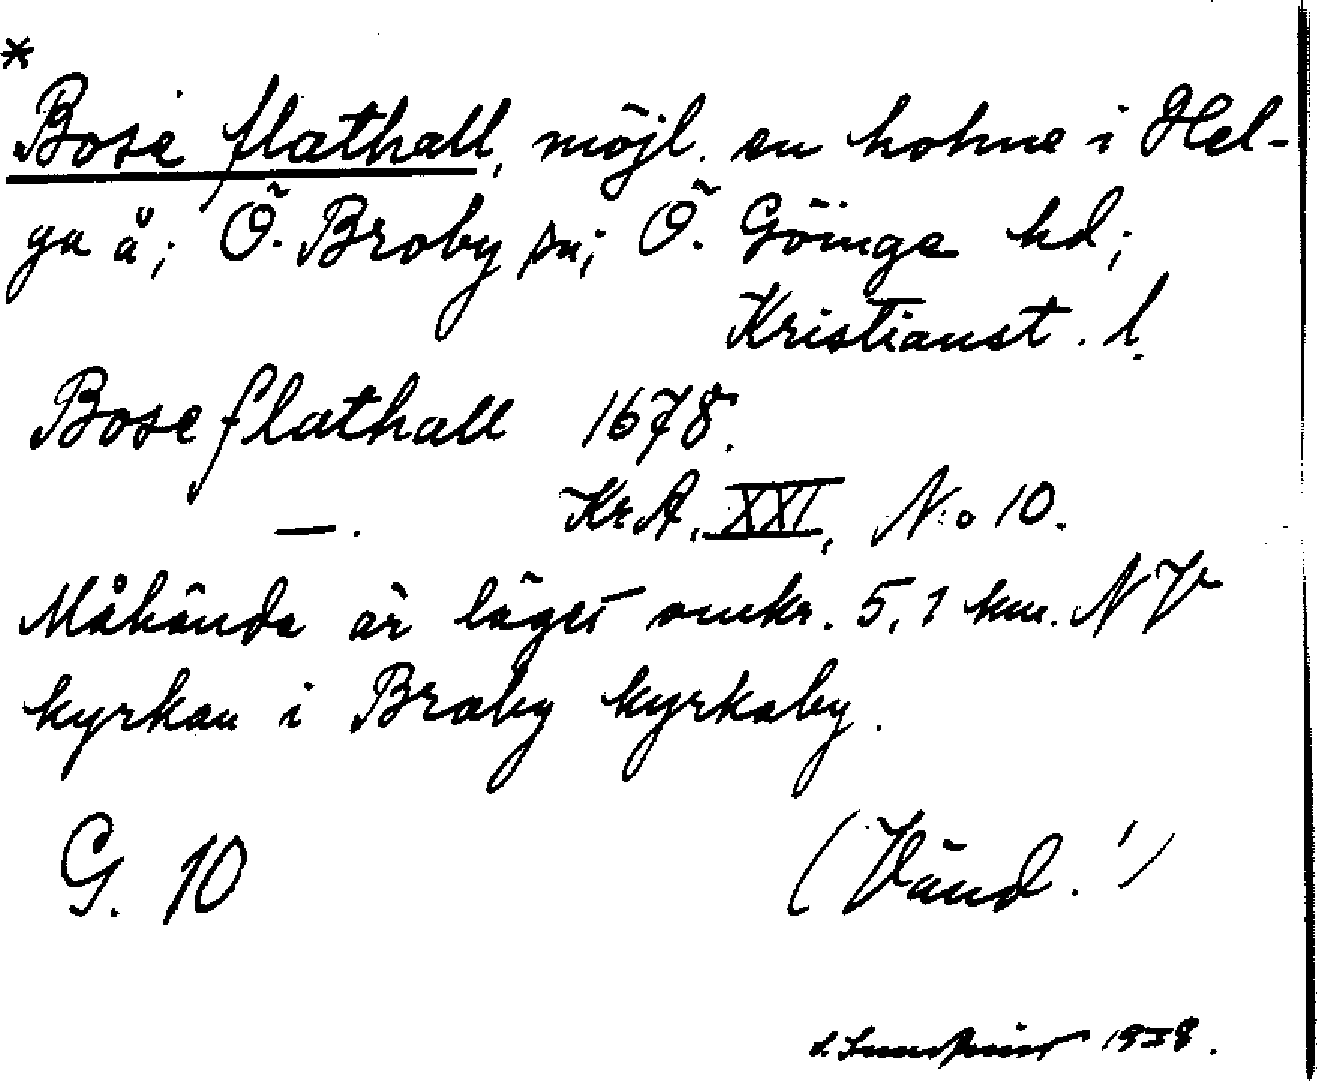 *
Bose flathall, möjl. en hohne i Hel-
ga å; Ö. Broby sn; Ö. Göinge hd;
Kristianst. l.
Bose flathall 1678.
—. KrA, XXI, N:o 10.
Måhända är läget omkr. 5,1 km. NV
kyrkan i Broby kyrkoby.
G. 10
(Vänd!)
1938.